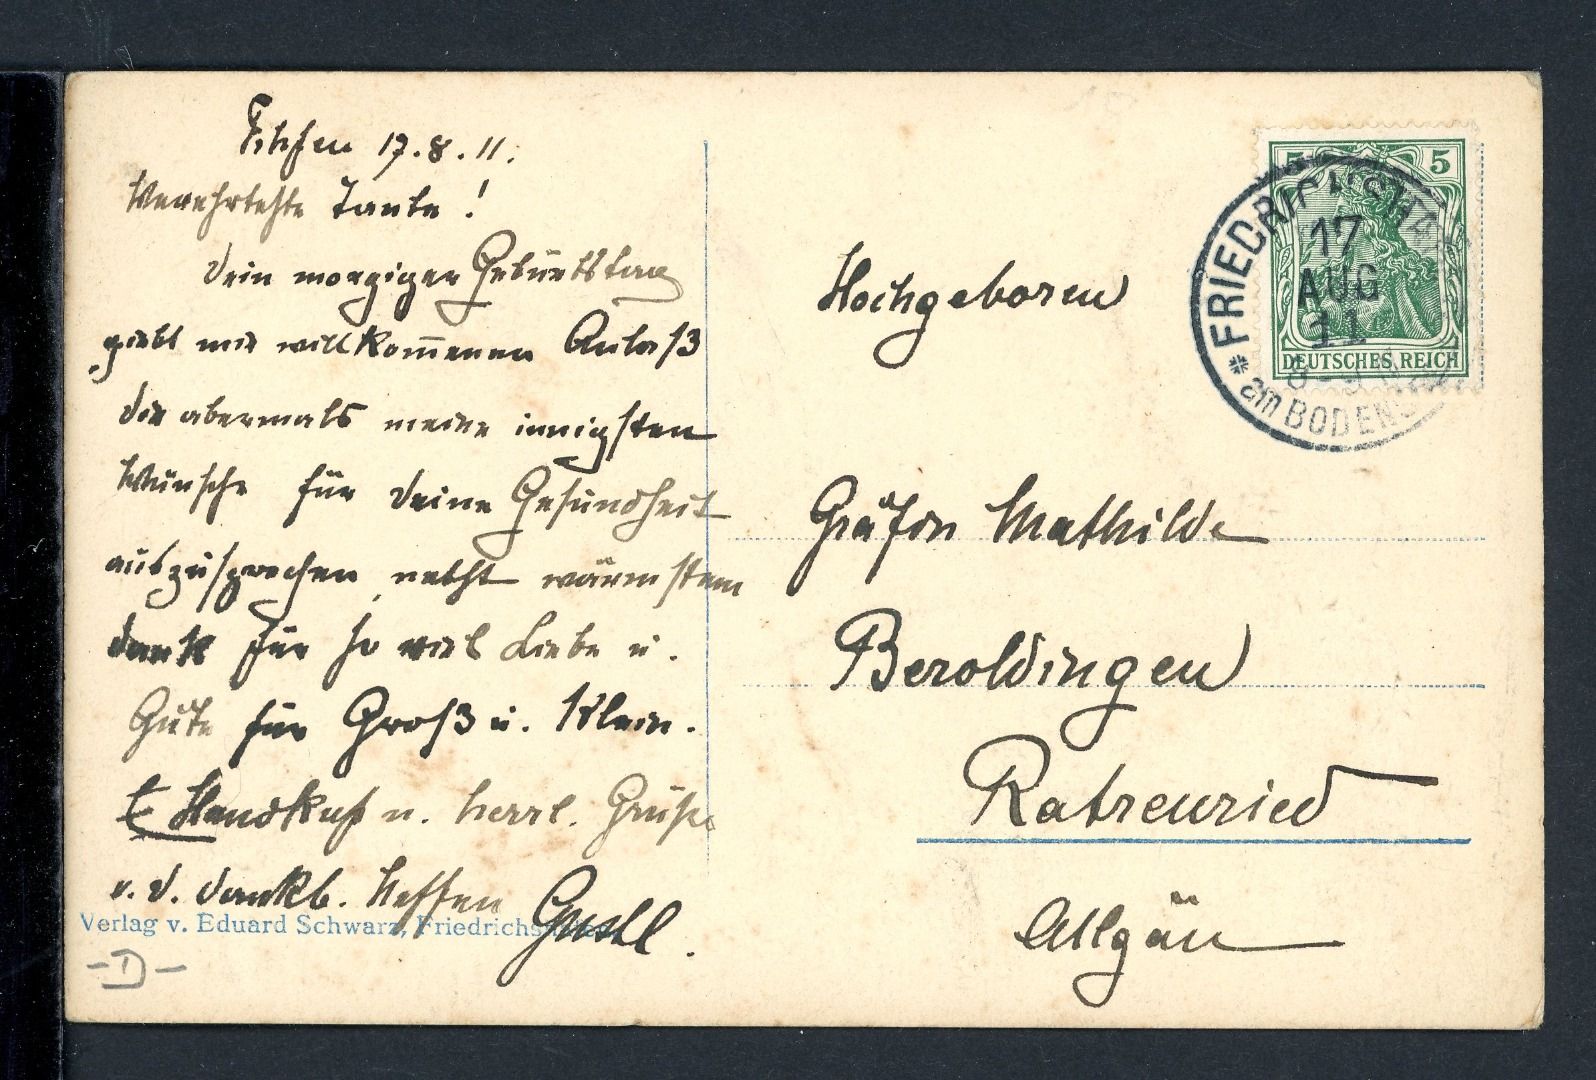 F.hafen 17.8.11.
Verehrteste Tante!
Dein morgiger Geburtstag
giebt mir willkom̄enen Anlaß
Dir abermals meine innigsten
Wünsche für Deine Gesundheit
auszusprechen, nebst wärmstem
Dank für so viel Liebe u.
Gute für Groß u. Klein.
Handkuß u. herzl. Grüße
v. D. dankb. Neffen Gustl.
Verlag v. Eduard Schwarz, Friedrichshafen
-D-
5 5
DEUTSCHES REICH
FRIEDRICHSHAFEN
17
AUG
11
8-9
* am BODENSEE
Hochgeboren
Gräfin Mathilde
Beroldingen
Ratzenried
Allgäu